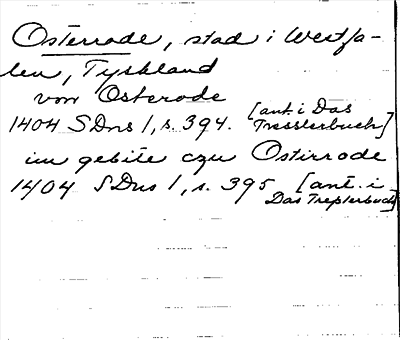 Osterrode, stad i Westfa-
len, Tyskland
von Osterode
1404 SDns 1, s. 394. [ant. i Das
Tresslerbuch]
im gebite czu Ostirrode
1404 SDns 1, s. 395 [ant. i
Das Tresslerbuch]